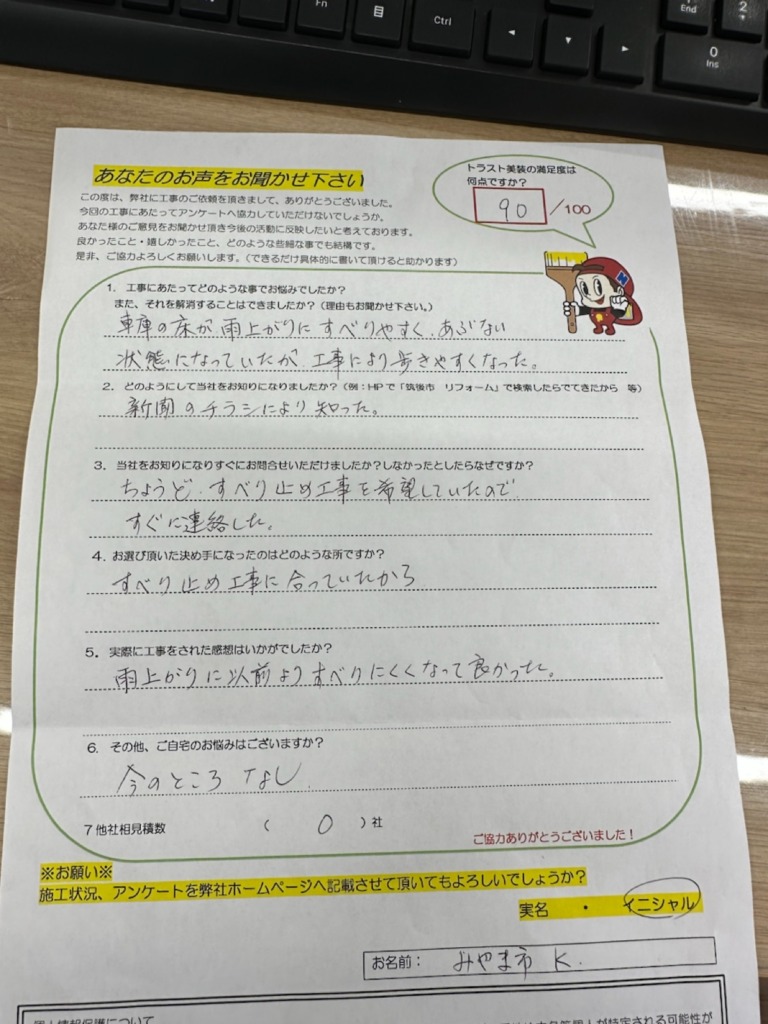 Fn
Ctrl
End
2
0
Ins
あなたのお声をお聞かせ下さい
この度は、弊社に工事のご依頼を頂きまして、ありがとうございました。
今回の工事にあたってアンケートへ協力していただけないでしょうか。
あなた様のご意見をお聞かせ頂き今後の活動に反映したいと考えております。
良かったこと・嬉しかったこと、どのような些細な事でも結構です。
是非、ご協力よろしくお願いします。（できるだけ具体的に書いて頂けると助かります）
トラスト美装の満足度は
何点ですか？
90 /100
1. 工事にあたってどのような事でお悩みでしたか？
また、それを解消することはできましたか？（理由もお聞かせ下さい。）
車庫の床が雨上がりにすべりやすく、あぶない
状態になっていたが、工事により歩きやすくなった。
2. どのようにして当社をお知りになりましたか？（例：HPで「筑後市 リフォーム」で検索したらでてきたから 等）
新聞のチラシにより知った。
3. 当社をお知りになりすぐにお問合せいただけましたか？しなかったとしたらなぜですか？
ちょうど、すべり止め工事を希望していたので
すぐに連絡した。
4. お選び頂いた決め手になったのはどのような所ですか？
すべり止め工事に合っていたから
5. 実際に工事をされた感想はいかがでしたか？
雨上がりに以前よりすべりにくくなって良かった。
6. その他、ご自宅のお悩みはございますか？
今のところなし
7 他社相見積数 （ 0 ）社
ご協力ありがとうございました！
※お願い※
施工状況、アンケートを弊社ホームページへ記載させて頂いてもよろしいでしょうか？
実名 ・ イニシャル
お名前： みやま市 K.
個人情報保護について